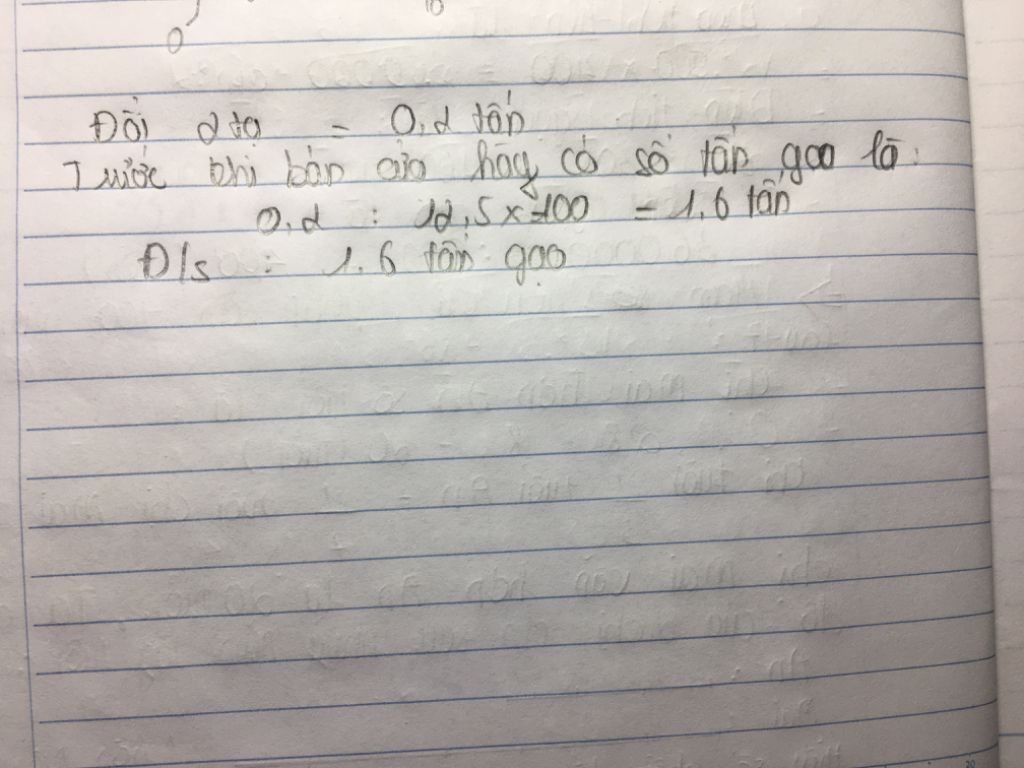 Đổi 2 tạ = 0,2 tấn
Trước khi bán cửa hãng có số tấn gạo là:
0,2 : 12,5 x 100 = 1,6 tấn
Đ/s : 1,6 tấn gạo